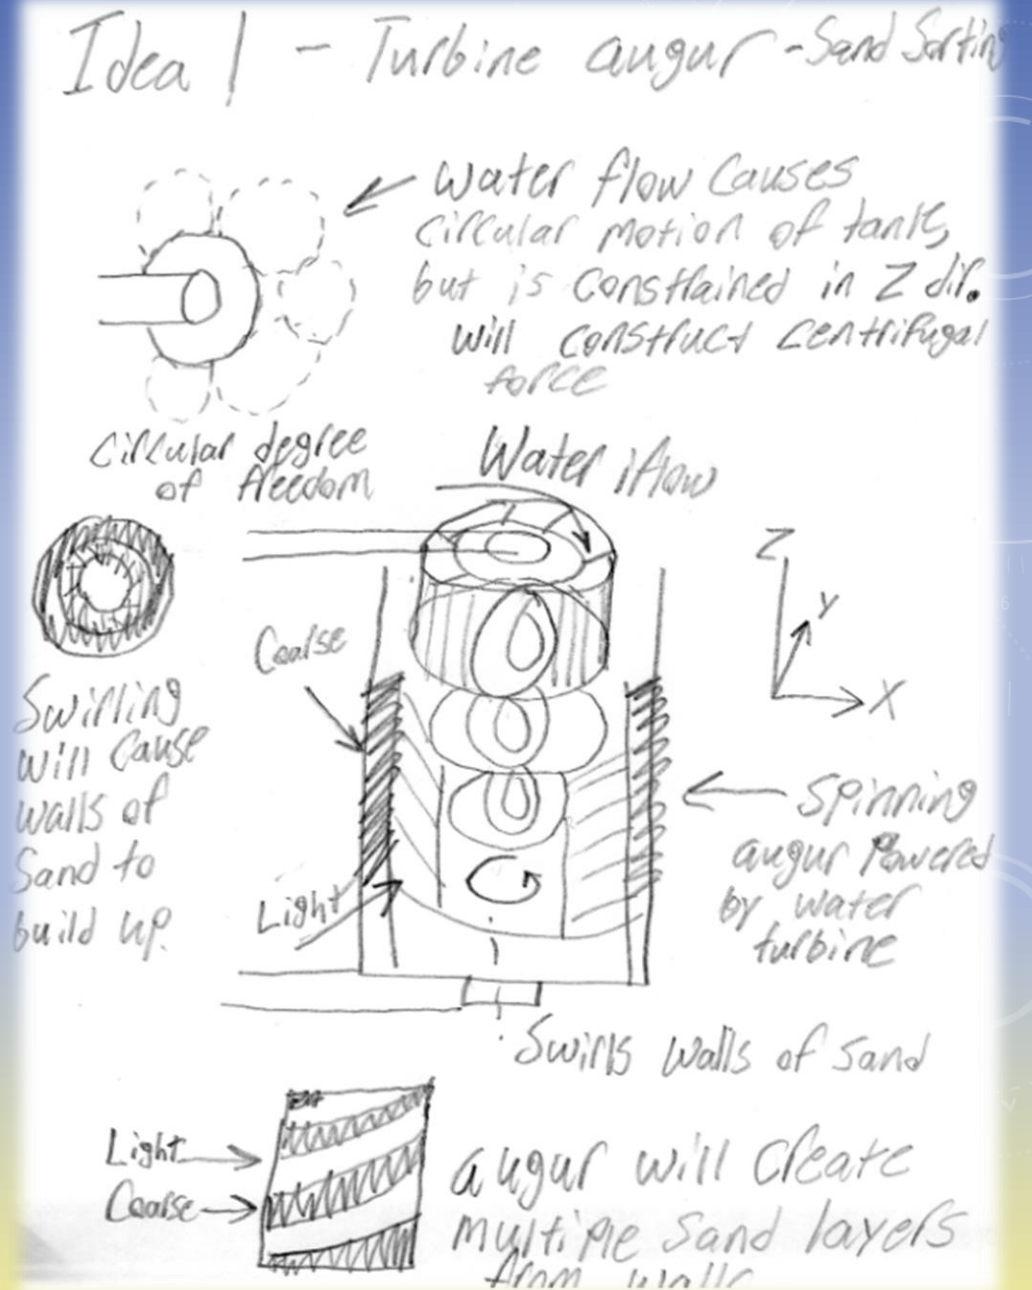 Idea 1 - Turbine augur - Sand Sorting
Water flow causes
circular motion of tank,
but is constrained in Z dir.
Will construct centrifugal
force
Circular degree
of freedom
Water flow
Z
Y
X
Coarse
Swirling
will cause
walls of
Sand to
build up.
Light
Spinning
augur Powered
by water
turbine
Swirls walls of sand
Light
Coarse
augur will create
multiple sand layers
from walls